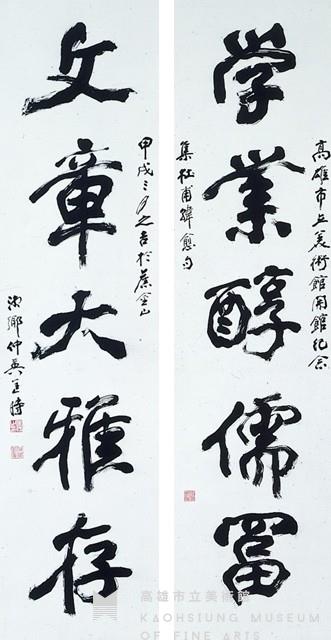 高雄市立美術館開館紀念
学業醇儒冨
集杜甫韓愈句
文章大雅存
甲戌三月之吉於蔡金山
高雄市立美術館
KAOHSIUNG MUSEUM
OF FINE ARTS